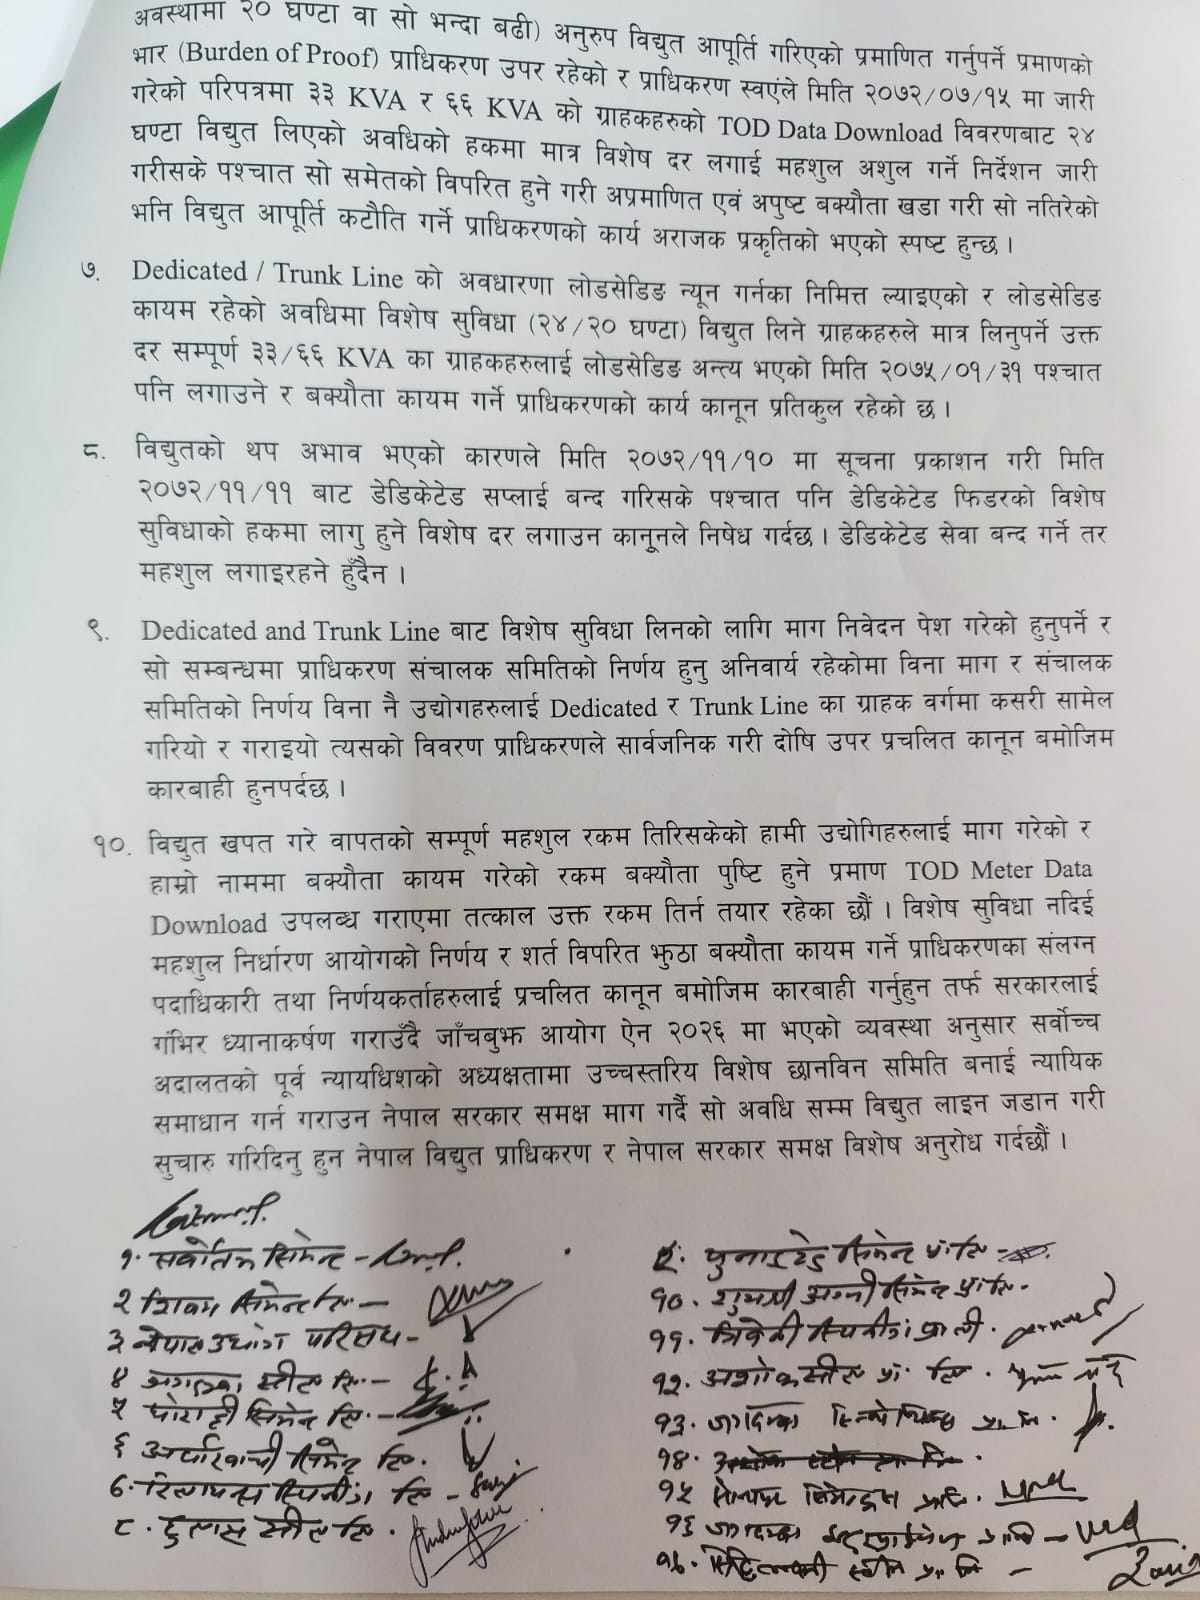 अवस्थामा २० घण्टा वा सो भन्दा बढी) अनुरुप विद्युत आपूर्ति गरिएको प्रमाणित गर्नुपर्ने प्रमाणको
भार (Burden of Proof) प्राधिकरण उपर रहेको र प्राधिकरण स्वएंले मिति २०७२/०७/१५ मा जारी
गरेको परिपत्रमा ३३ KVA र ६६ KVA को ग्राहकहरुको TOD Data Download विवरणबाट २४
घण्टा विद्युत लिएको अवधिको हकमा मात्र विशेष दर लगाई महशुल अशुल गर्ने निर्देशन जारी
गरीसके पश्चात सो समेतको विपरित हुने गरी अप्रमाणित एवं अपुष्ट बक्यौता खडा गरी सो नतिरेको
भनि विद्युत आपूर्ति कटौति गर्ने प्राधिकरणको कार्य अराजक प्रकृतिको भएको स्पष्ट हुन्छ ।
७. Dedicated / Trunk Line को अवधारणा लोडसेडिङ न्यून गर्नका निमित्त ल्याइएको र लोडसेडिङ
कायम रहेको अवधिमा विशेष सुविधा (२४/२० घण्टा) विद्युत लिने ग्राहकहरुले मात्र लिनुपर्ने उक्त
दर सम्पूर्ण ३३/६६ KVA का ग्राहकहरुलाई लोडसेडिङ अन्त्य भएको मिति २०७५/०१/३१ पश्चात
पनि लगाउने र बक्यौता कायम गर्ने प्राधिकरणको कार्य कानून प्रतिकुल रहेको छ ।
८. विद्युतको थप अभाव भएको कारणले मिति २०७२/११/१० मा सूचना प्रकाशन गरी मिति
२०७२/११/११ बाट डेडिकेटेड सप्लाई बन्द गरिसके पश्चात पनि डेडिकेटेड फिडरको विशेष
सुविधाको हकमा लागु हुने विशेष दर लगाउन कानूनले निषेध गर्दछ । डेडिकेटेड सेवा बन्द गर्ने तर
महशुल लगाइरहने हुँदैन ।
९. Dedicated and Trunk Line बाट विशेष सुविधा लिनको लागि माग निवेदन पेश गरेको हुनुपर्ने र
सो सम्बन्धमा प्राधिकरण संचालक समितिको निर्णय हुनु अनिवार्य रहेकोमा विना माग र संचालक
समितिको निर्णय विना नै उद्योगहरुलाई Dedicated र Trunk Line का ग्राहक वर्गमा कसरी सामेल
गरियो र गराइयो त्यसको विवरण प्राधिकरणले सार्वजनिक गरी दोषि उपर प्रचलित कानून बमोजिम
कारबाही हुनपर्दछ ।
१०. विद्युत खपत गरे वापतको सम्पूर्ण महशुल रकम तिरिसकेको हामी उद्योगिहरुलाई माग गरेको र
हाम्रो नाममा बक्यौता कायम गरेको रकम बक्यौता पुष्टि हुने प्रमाण TOD Meter Data
Download उपलब्ध गराएमा तत्काल उक्त रकम तिर्न तयार रहेका छौं । विशेष सुविधा नदिई
महशुल निर्धारण आयोगको निर्णय र शर्त विपरित झुठा बक्यौता कायम गर्ने प्राधिकरणका संलग्न
पदाधिकारी तथा निर्णयकर्ताहरुलाई प्रचलित कानून बमोजिम कारबाही गर्नुहुन तर्फ सरकारलाई
गंभिर ध्यानाकर्षण गराउँदै जाँचबुझ आयोग ऐन २०२६ मा भएको व्यवस्था अनुसार सर्वोच्च
अदालतको पूर्व न्यायधिशको अध्यक्षतामा उच्चस्तरिय विशेष छानविन समिति बनाई न्यायिक
समाधान गर्न गराउन नेपाल सरकार समक्ष माग गर्दै सो अवधि सम्म विद्युत लाइन जडान गरी
सुचारु गरिदिनु हुन नेपाल विद्युत प्राधिकरण र नेपाल सरकार समक्ष विशेष अनुरोध गर्दछौं ।
१. सर्वोत्तम सिमेन्ट –
२ शिवम सिमेन्ट लि. –
३ नेपाल उद्योग परिसंघ –
४ स्टील लि. –
५ घोराही सिमेन्ट लि. –
६ सिमेन्ट लि.
७. रिलायन्स स्पिनिङ लि –
८. हुलास स्टील लि.
९. युनाइटेड सिमेन्ट प्रा लि –
१०. शुभश्री अग्नी सिमेन्ट प्रा.लि.
११. त्रिवेणी स्पिनीङ प्रा.ली.
१२. अशोक स्टील प्रा. लि.
१३. जगदम्बा प्रा. लि.
१४.
१५ प्रा.लि.
१६ जगदम्बा प्रा लि –
१७. स्टील प्रा लि –